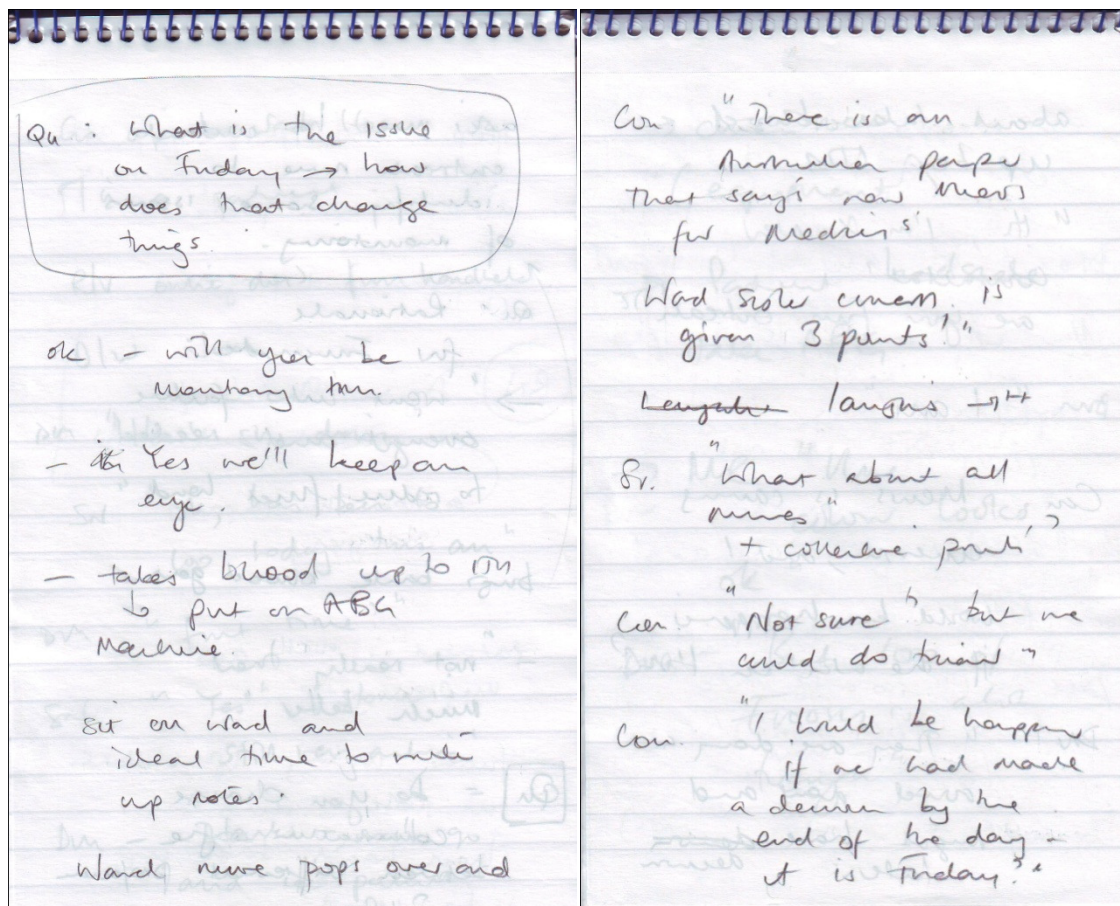 Qu : What is the issue
on Friday → how
does that change
things.
ok – will you be
monitoring him.
– Yes we'll keep an
eye.
– takes blood up to ITU
↳ put on ABG
Machine.
Sit on ward and
ideal time to write
up notes.
Ward nurse pops over and
Con "There is an
Australian paper
that says now
for
Ward concern is
given 3 points!"
laughs →++
Sr. "What about all
nurses"
+ collective points'
Con. "Not sure" but we
could do trial"
Con. "I would be happier
if we had made
a decision by the
end of the day –
it is Friday."